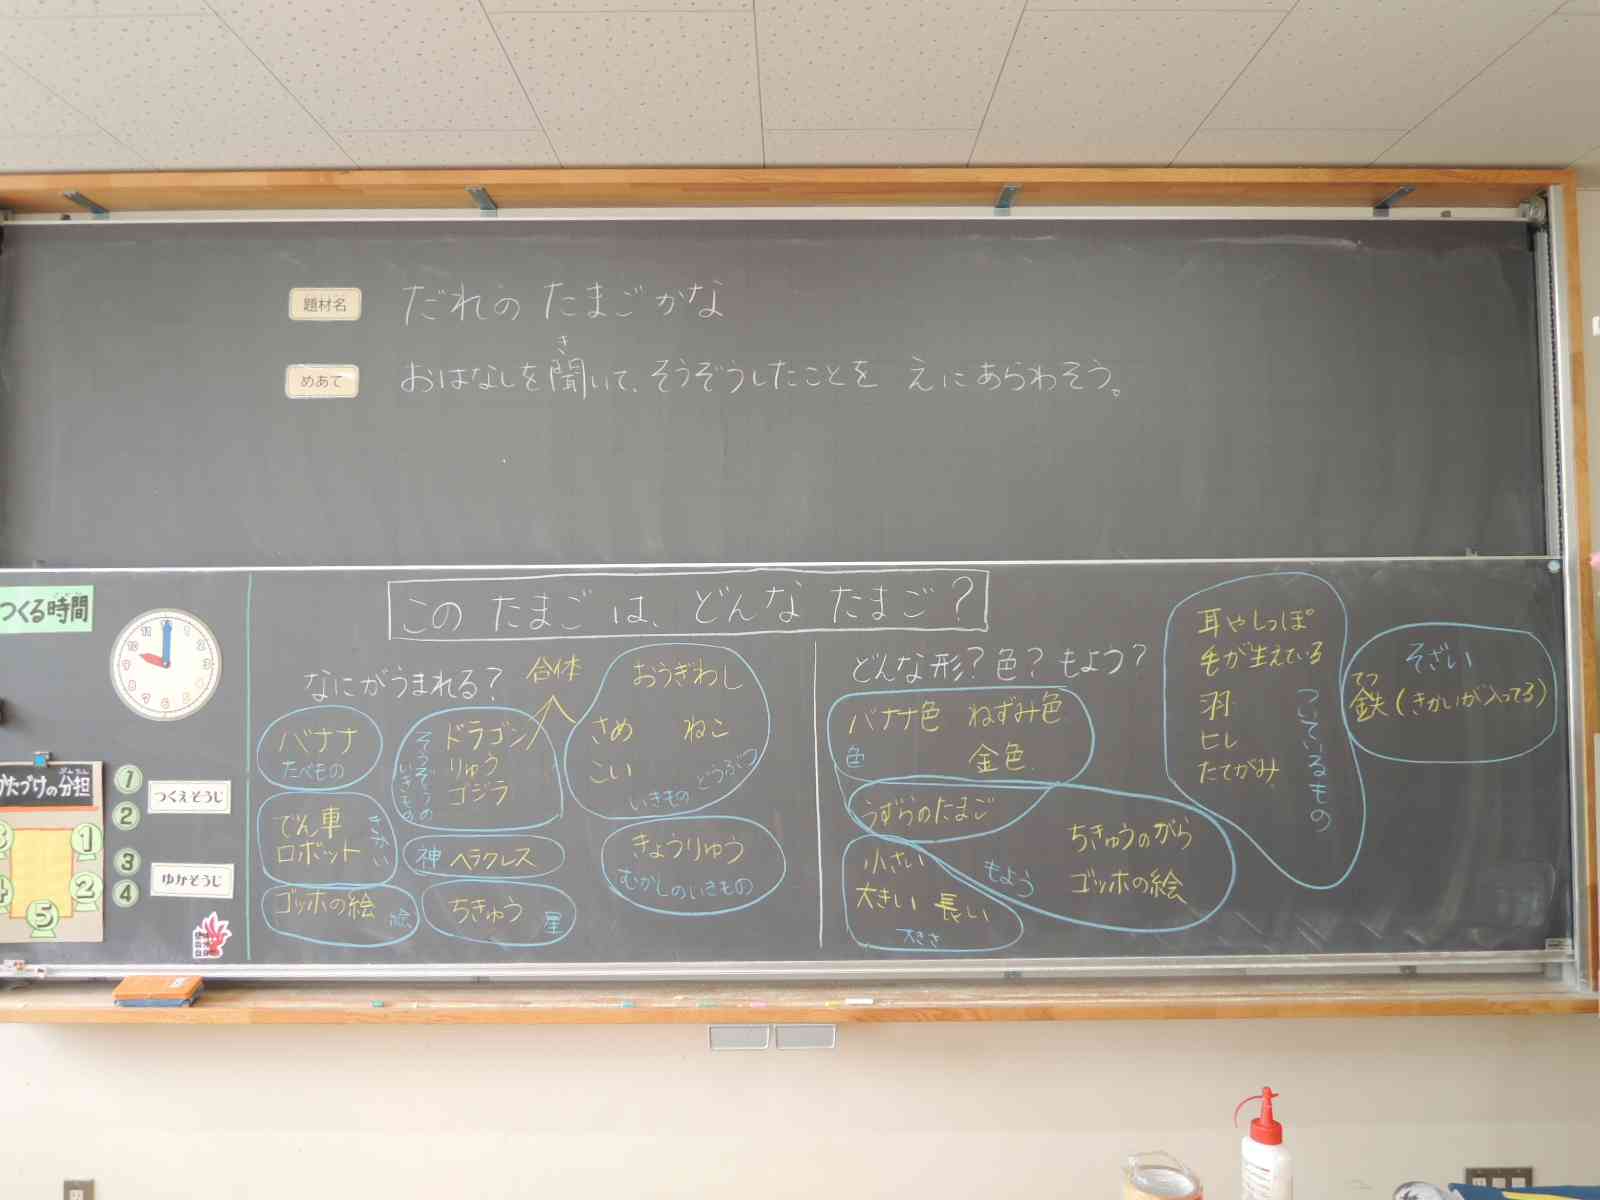 題材名
だれの たまごかな
めあて
おはなしを聞いて、そうぞうしたことを えにあらわそう。
き
つくる時間
12
1
2
3
5
6
7
8
9
10
11
かたづけの分担
ぶんたん
1
2
4
5
①
②
③
④
つくえそうじ
ゆかそうじ
この たまごは、どんな たまご?
なにがうまれる?
合体
バナナ
たべもの
でん車
ロボット
きかい
ゴッホの絵
絵
ドラゴン
りゅう
ゴジラ
そうぞうの
いきもの
神 ヘラクレス
ちきゅう
星
おうぎわし
さめ ねこ
こい
いきもの どうぶつ
きょうりゅう
むかしのいきもの
どんな形?色?もよう?
バナナ色 ねずみ色
金色
色
うずらのたまご
ちきゅうのがら
ゴッホの絵
もよう
小さい
大きい 長い
大きさ
耳やしっぽ
毛が生えている
羽
ヒレ
たてがみ
ついているもの
そざい
てつ
鉄(きかいが入ってる)